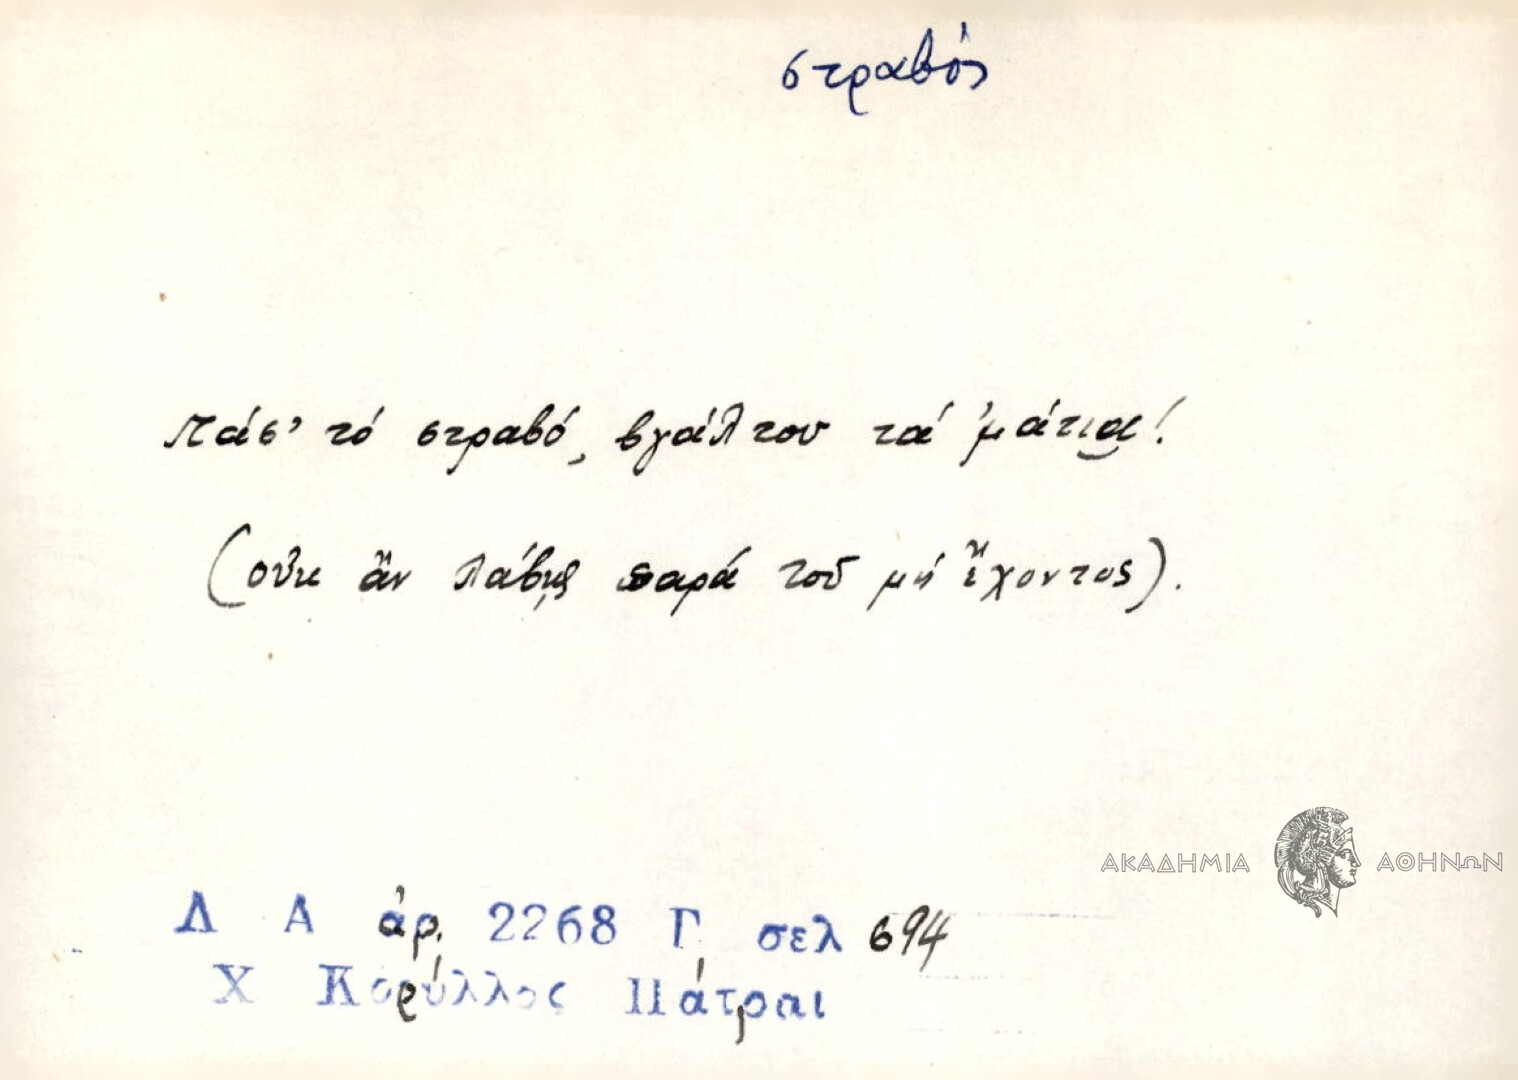 στραβός
Πάσ' τό στραβό, βγάλτου τά 'μάτια!
(οὐκ ἄν λάβῃς παρά τοῦ μή ἔχοντος).
ΑΚΑΔΗΜΙΑ ΑΘΗΝΩΝ
Λ Α ἀρ. 2268 Γ σελ 694
Χ Κορύλλος Πάτραι